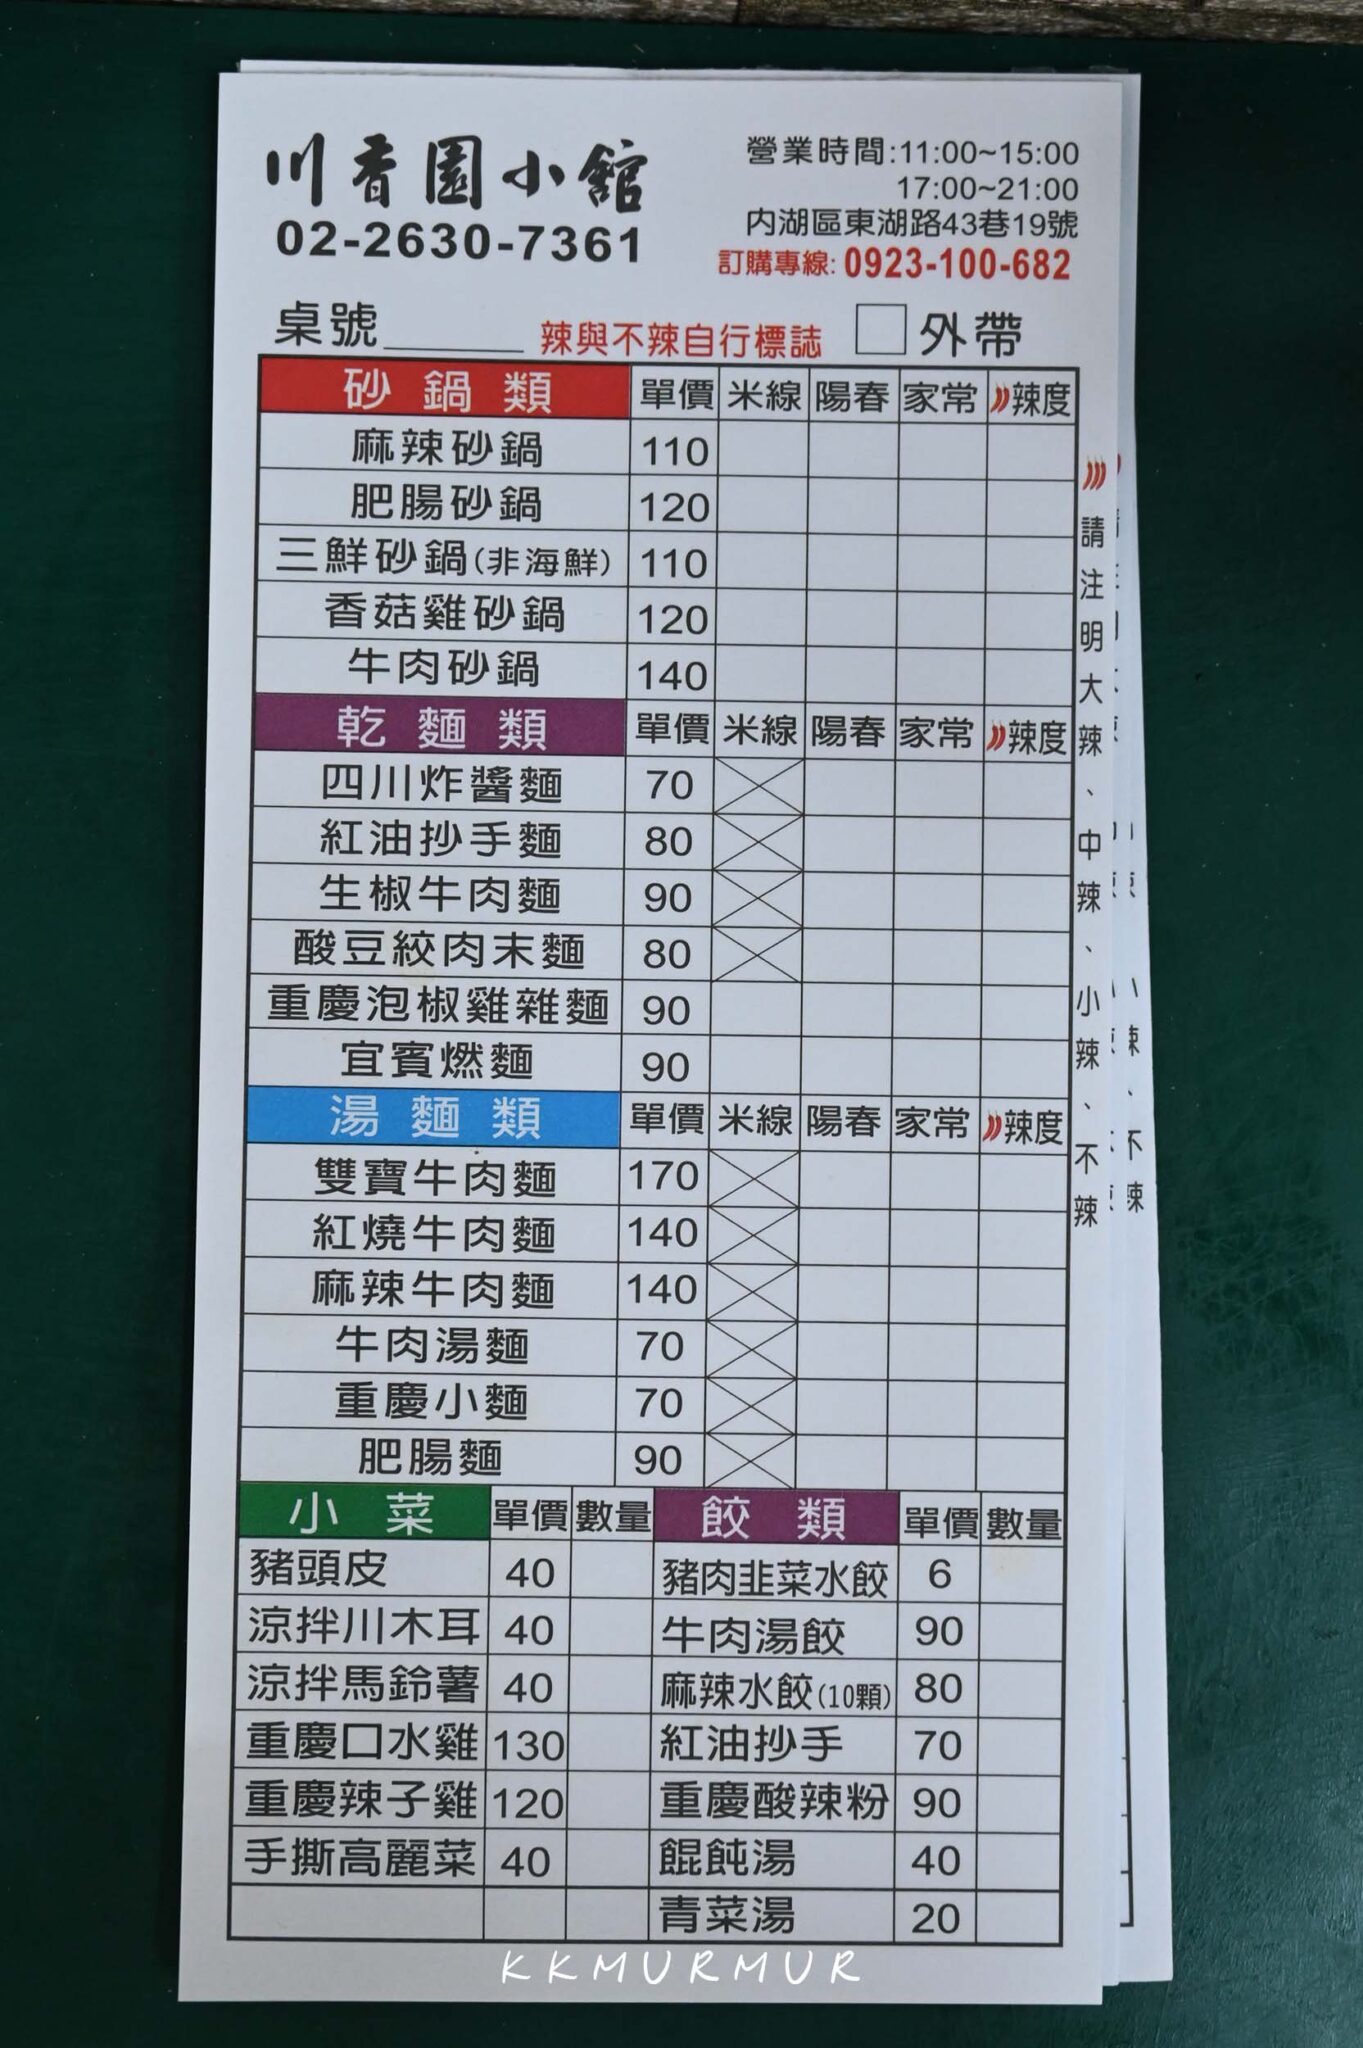 川香園小館
02-2630-7361
營業時間:11:00~15:00
17:00~21:00
內湖區東湖路43巷19號
訂購專線:0923-100-682
桌號______ 辣與不辣自行標誌 外帶
砂鍋類 單價 米線 陽春 家常 辣度
麻辣砂鍋 110
肥腸砂鍋 120
三鮮砂鍋(非海鮮) 110
香菇雞砂鍋 120
牛肉砂鍋 140
乾麵類 單價 米線 陽春 家常 辣度
四川炸醬麵 70
紅油抄手麵 80
生椒牛肉麵 90
酸豆絞肉末麵 80
重慶泡椒雞雜麵 90
宜賓燃麵 90
湯麵類 單價 米線 陽春 家常 辣度
雙寶牛肉麵 170
紅燒牛肉麵 140
麻辣牛肉麵 140
牛肉湯麵 70
重慶小麵 70
肥腸麵 90
請注明大辣、中辣、小辣、不辣
小菜 單價 數量 餃類 單價 數量
豬頭皮 40 豬肉韭菜水餃 6
涼拌川木耳 40 牛肉湯餃 90
涼拌馬鈴薯 40 麻辣水餃(10顆) 80
重慶口水雞 130 紅油抄手 70
重慶辣子雞 120 重慶酸辣粉 90
手撕高麗菜 40 餛飩湯 40
青菜湯 20
KKMURMUR